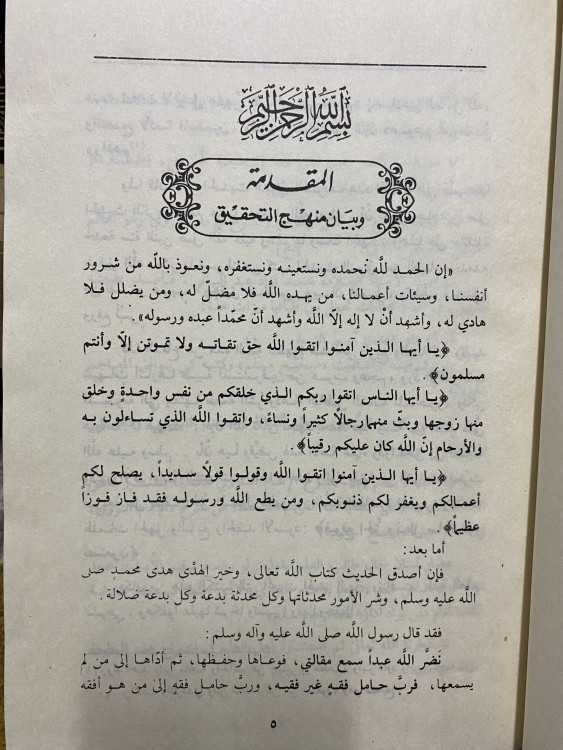 بسم الله الرحمن الرحيم
المقدمة
وبيان منهج التحقيق
«إن الحمد لله نحمده ونستعينه ونستغفره، ونعوذ بالله من شرور
أنفسنا، وسيئات أعمالنا، من يهده الله فلا مضلّ له، ومن يضلل فلا
هادي له، وأشهد أنْ لا إله إلّا الله وأشهد أنّ محمّداً عبده ورسوله».
﴿يا أيها الذين آمنوا اتقوا الله حق تقاتـه ولا تموتن إلّا وأنتم
مسلمون﴾.
﴿يا أيها الناس اتقوا ربكم الذي خلقكم من نفس واحدةٍ وخلق
منها زوجها وبثّ منهما رجالاً كثيراً ونساءً، واتقوا الله الذي تساءلون به
والأرحام إنّ الله كان عليكم رقيباً﴾.
﴿يا أيها الذين آمنوا اتقوا الله وقولوا قولاً سديداً، يصلح لكم
أعمالكم ويغفر لكم ذنوبكم، ومن يطع الله ورسوله فقد فاز فوزاً
عظيماً﴾.
أما بعد:
فإن أصدق الحديث كتاب الله تعالى، وخير الهدْى هدى محمدٍ صلى
الله عليه وسلم، وشر الأمور محدثاتها وكل محدثة بدعة وكل بدعة ضلالة.
فقد قال رسول الله صلى الله عليه وآله وسلم:
نَضَّر الله عبداً سمع مقالتي، فوعاها وحفظها، ثم أدّاها إلى من لم
يسمعها، فربّ حامل فقهٍ غير فقيه، وربّ حامل فقهٍ إلى من هو أفقه
٥